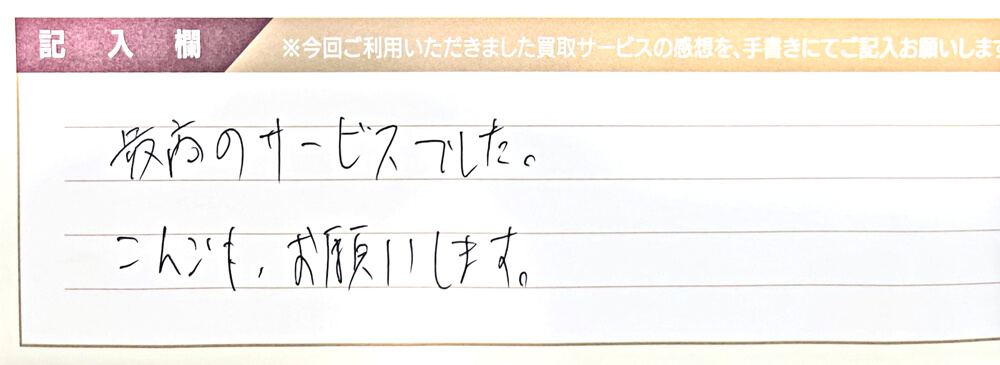 記入欄
※今回ご利用いただきました買取サービスの感想を、手書きにてご記入お願いします
最高のサービスでした。
こんごも、お願いします。